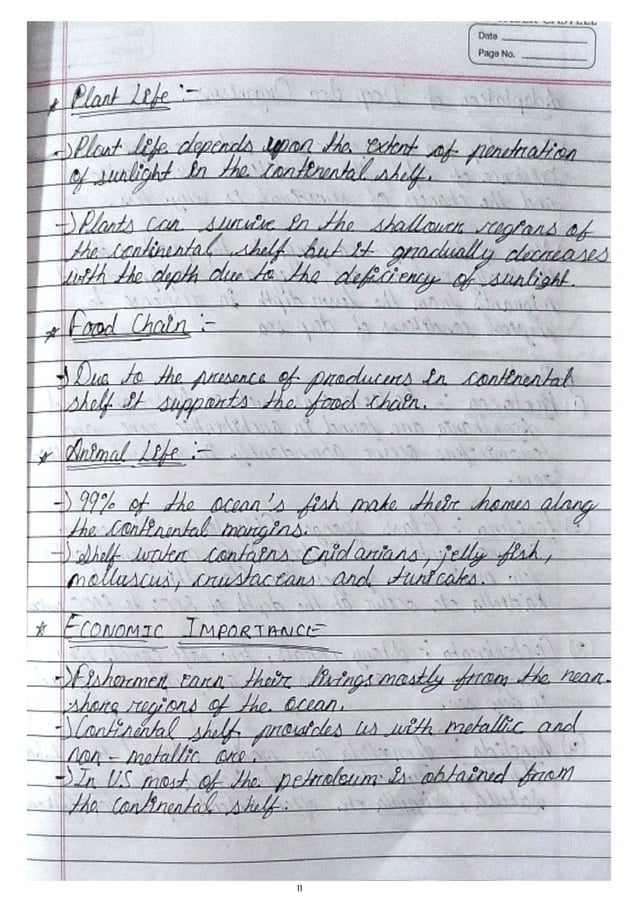 Date
Page No.
* Plant Life :-
→ Plant life depends upon the extent of penetration
of sunlight in the continental shelf.
→ Plants can survive in the shallower regions of
the continental shelf but it gradually decreases
with the depth due to the deficiency of sunlight.
* Food Chain :-
→ Due to the presence of producers in continental
shelf it supports the food chain.
* Animal Life :-
→ 99% of the ocean's fish make their homes along
the continental margins.
→ Shelf water contains Cnidarians, jelly fish,
molluscus, crustaceans and tunicates.
* ECONOMIC IMPORTANCE
→ Fishermen earn their livings mostly from the near-
shore regions of the ocean.
→ Continental shelf provides us with metallic and
non-metallic ore.
→ In US most of the petroleum is obtained from
the continental shelf.
11